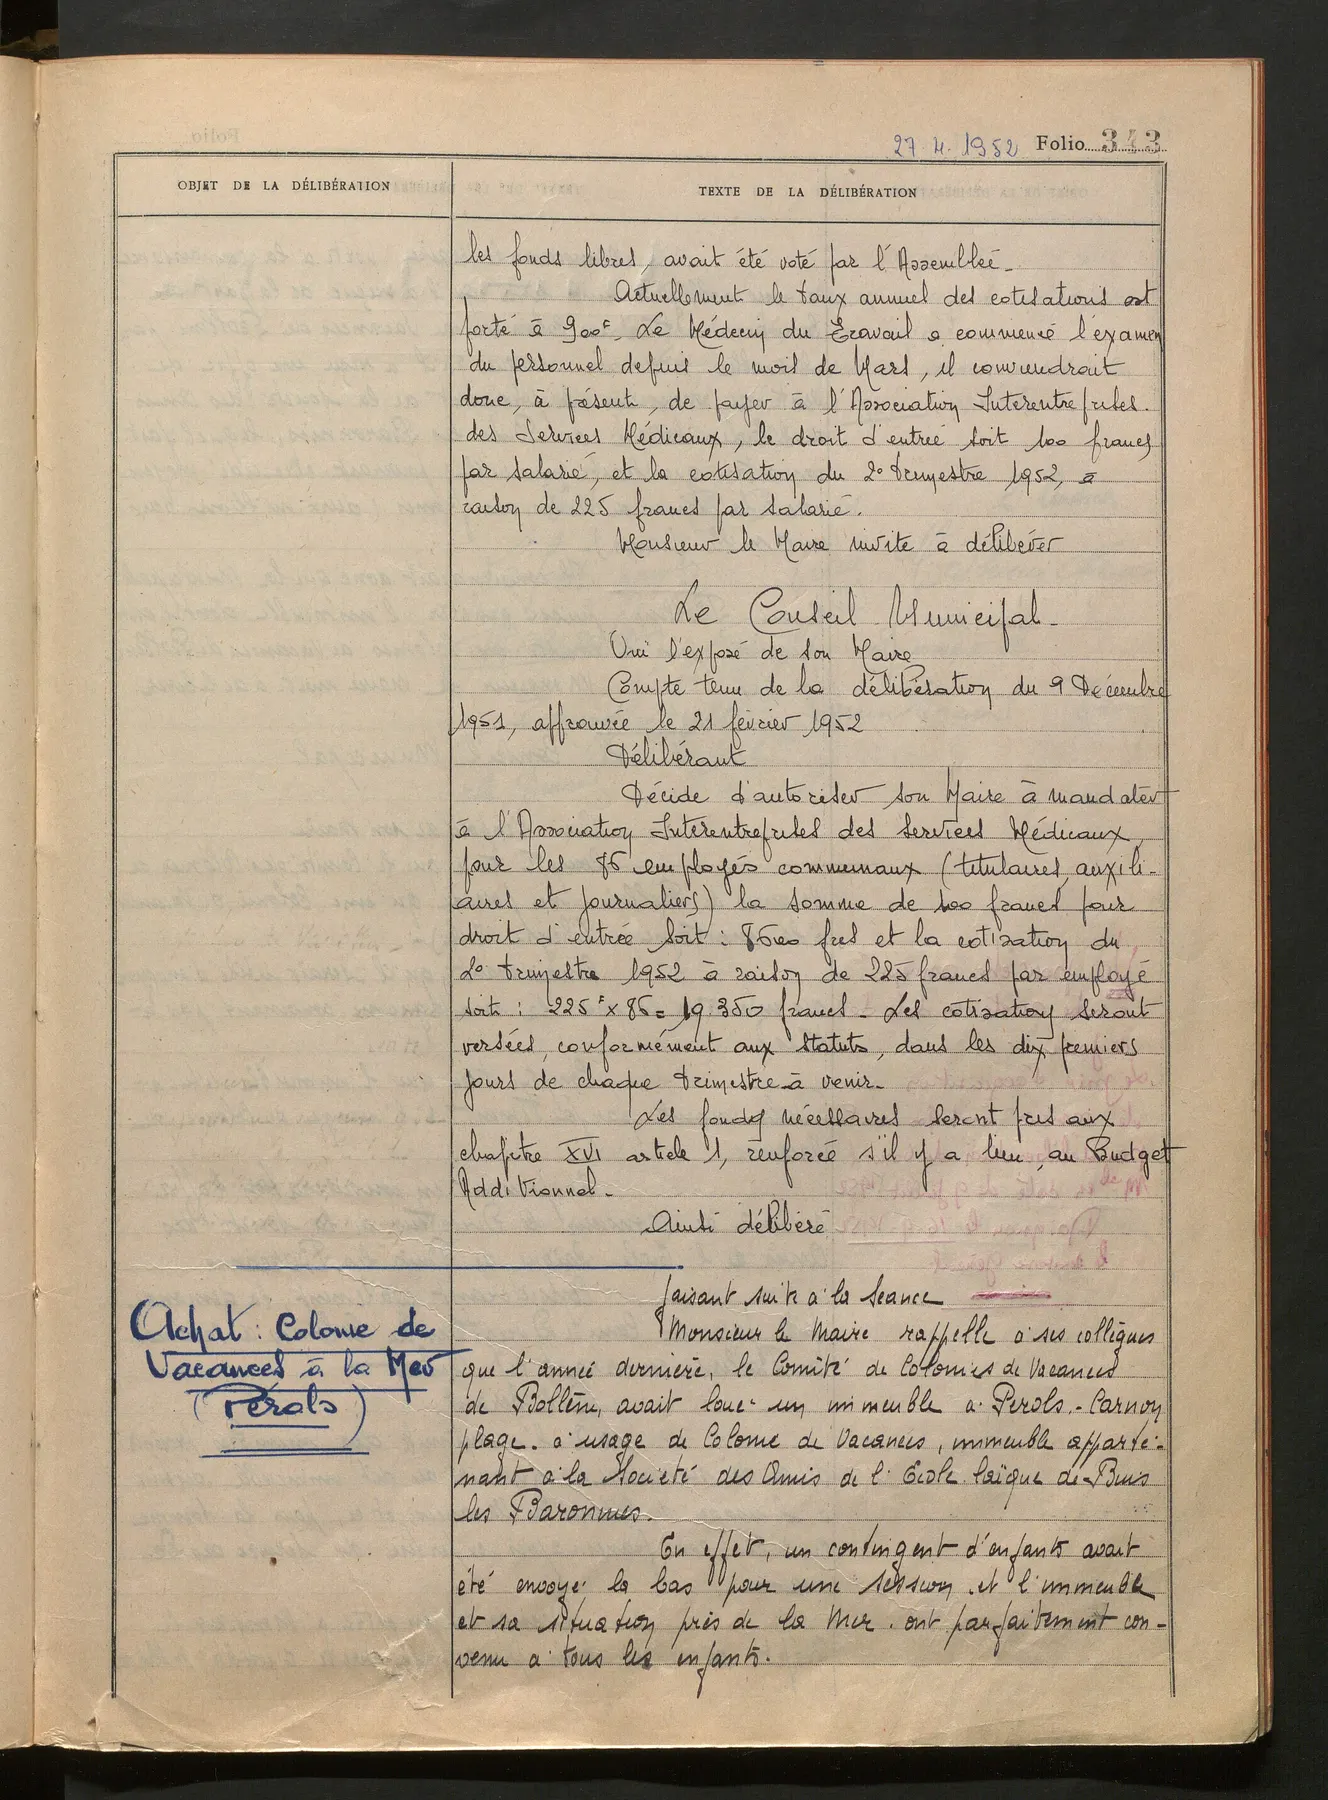 27.4.1952 Folio 343
OBJET DE LA DÉLIBÉRATION
TEXTE DE LA DÉLIBÉRATION
les fonds libres, avait été voté par l'Assemblée.
Actuellement le taux annuel des cotisations est
porté à 900F. Le Médecin du Travail a commencé l'examen
du personnel depuis le mois de Mars, il conviendrait
donc, à présent, de payer à l'Association Interentreprises.
des Services Médicaux, le droit d'entrée soit 100 francs
par salarié, et la cotisation du 2° trimestre 1952, à
raison de 225 francs par salarié.
Monsieur le Maire invite à délibérer
Le Conseil Municipal.
Oui l'exposé de son Maire
Compte tenu de la délibération du 9 Décembre
1951, approuvée le 21 février 1952
Délibérant
Décide d'autoriser son Maire à mandater
à l'Association Interentreprises des Services Médicaux
pour les 86 employés communaux (titulaires, auxili-
aires et journaliers) la somme de 100 francs pour
droit d'entrée soit : 8600 frcs et la cotisation du
2° trimestre 1952 à raison de 225 francs par employé
soit : 225F x 86 = 19.350 francs. Les cotisation seront
versées, conformément aux statuts, dans les dix premiers
jours de chaque trimestre à venir.
Les fonds nécessaires seront pris aux
chapitre XVI article 1, renforcé s'il y a lieu, au Budget
Additionnel.
Ainsi délibéré
faisant suite à la séance
Achat : Colonie de
Vacances à la Mer
(Pérols)
Monsieur le Maire rappelle à ses collègues
que l'année dernière, le Comité de Colonies de Vacances
de Bollène, avait loué un immeuble à Perols.- Carnon
plage. à usage de Colonie de Vacances, immeuble apparte-
nant à la Société des Amis de l'Ecole laïque de Buis
les Baronnies.
En effet, un contingent d'enfants avait
été envoyé là bas pour une session. et l'immeuble
et sa situation près de la Mer. ont parfaitement con-
venu à tous les enfants.